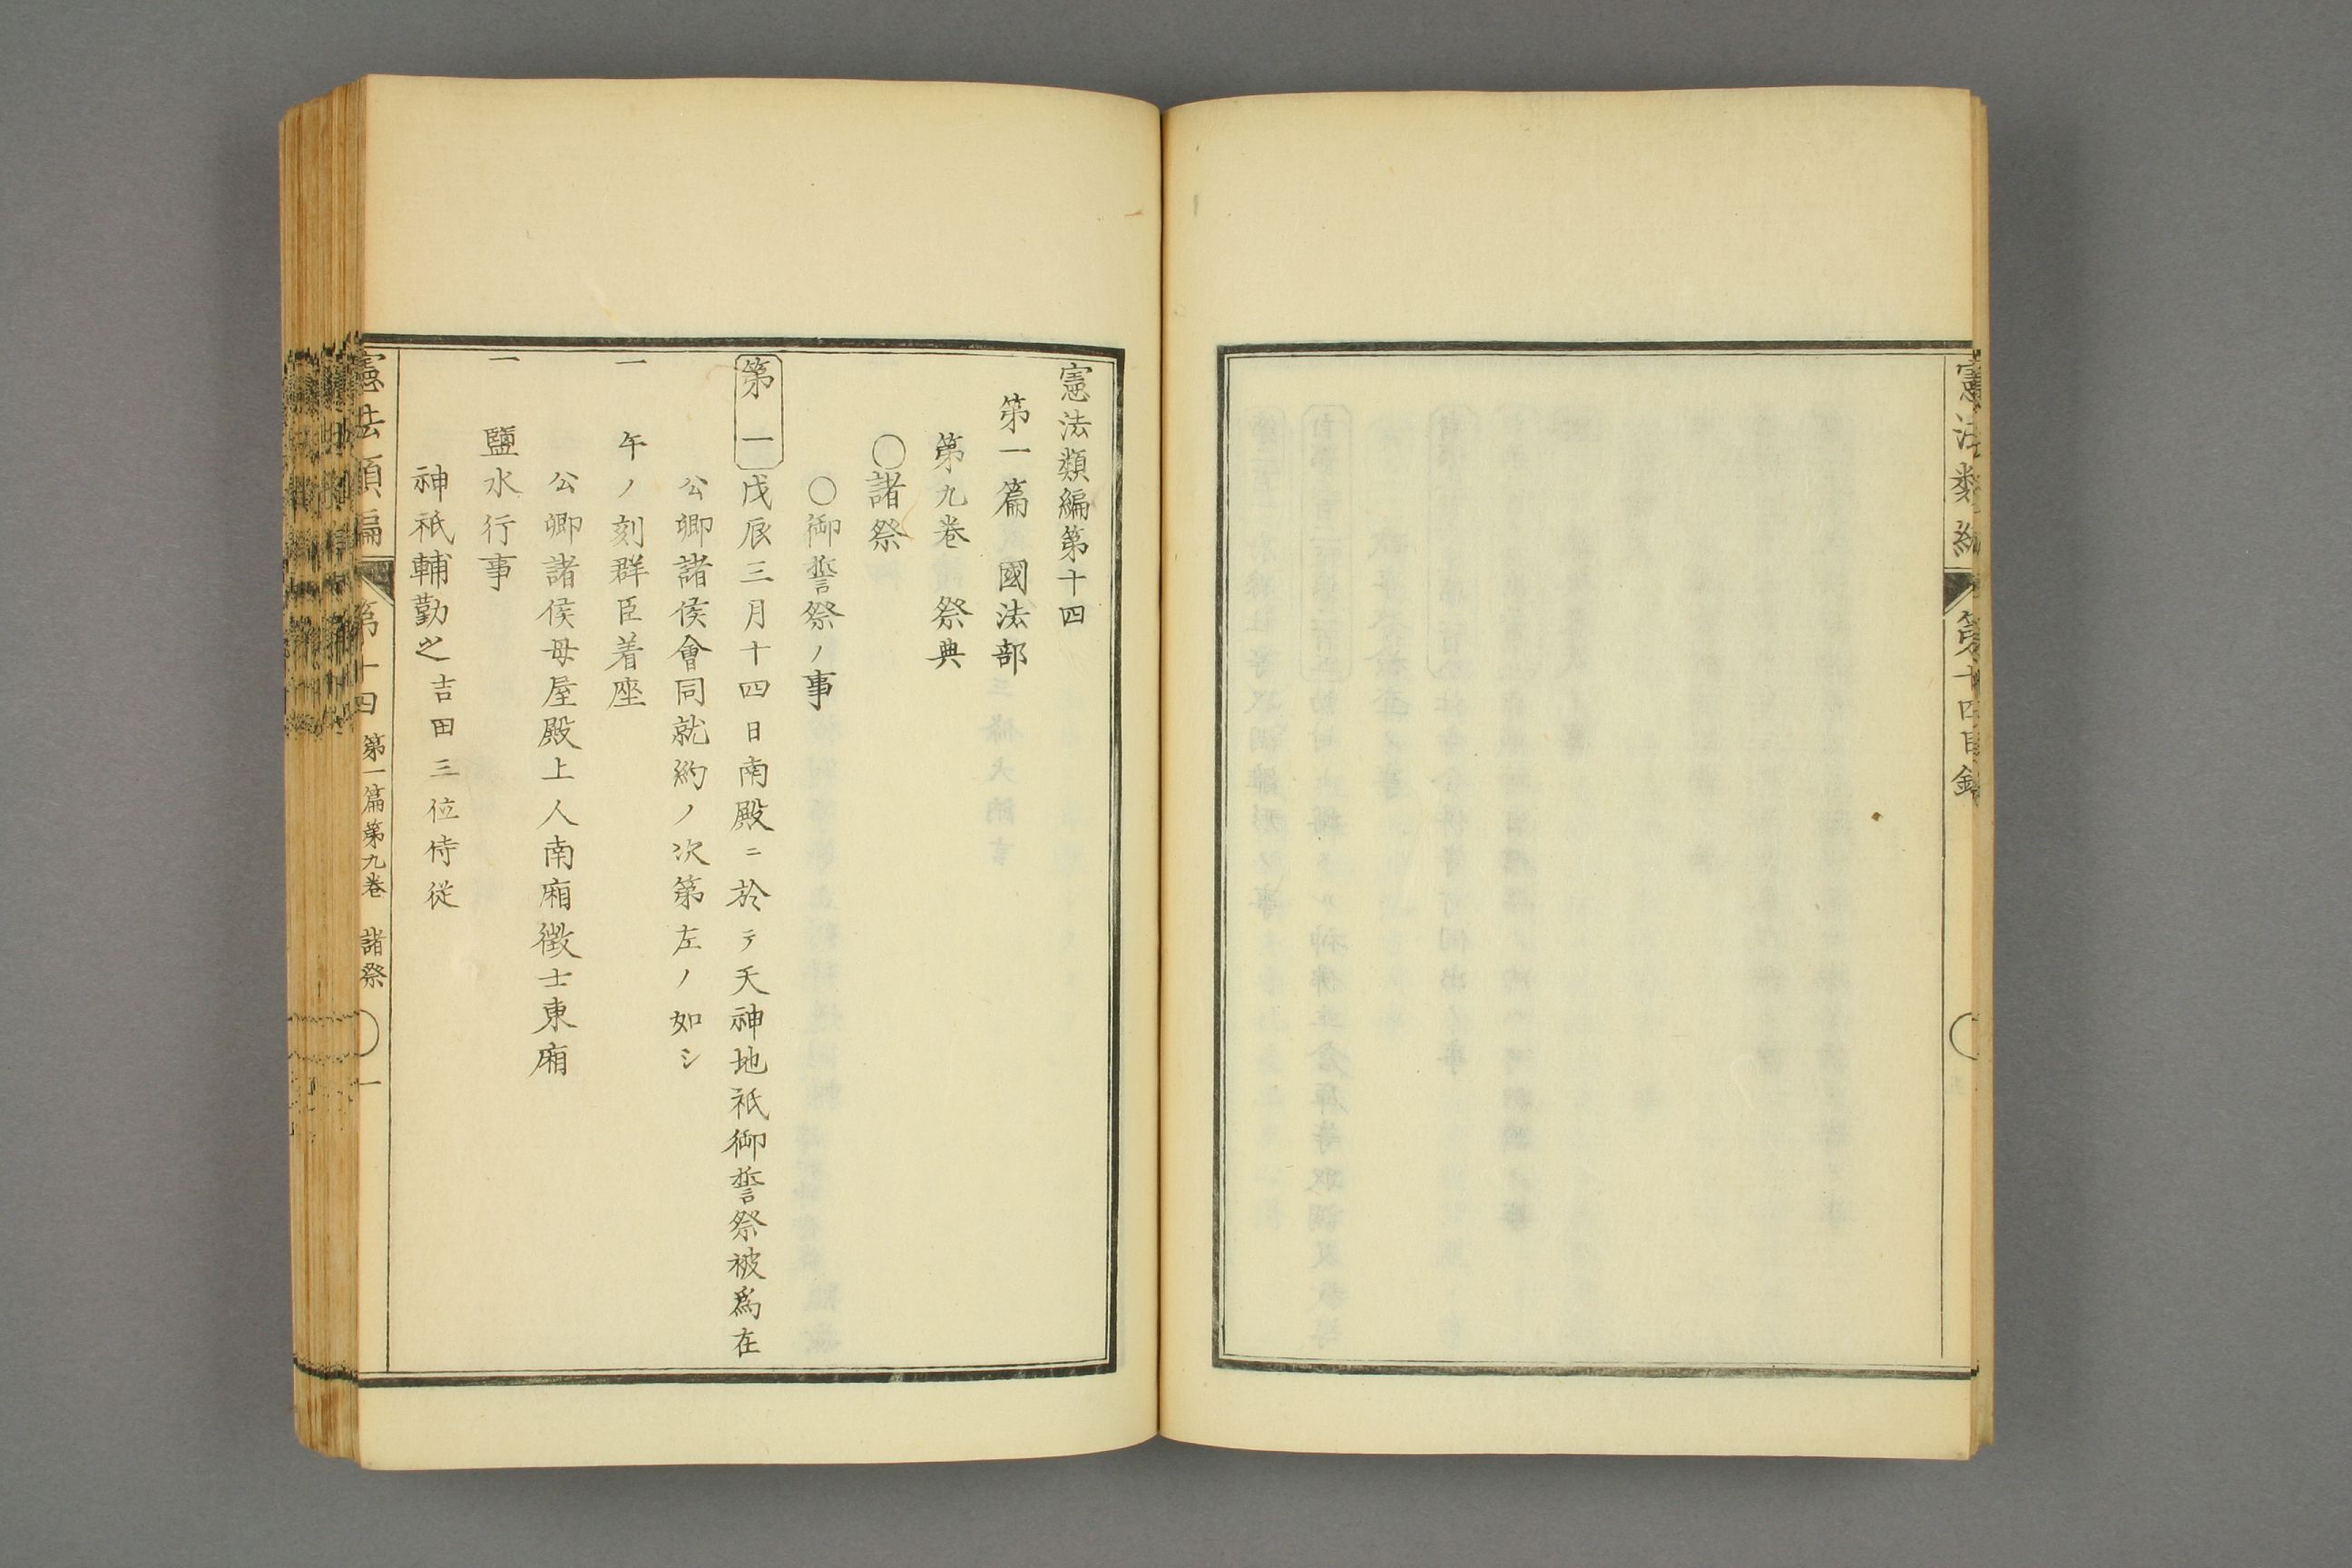 憲法類編
第十四目錄
憲法類編第十四
第一篇　國法部
第九卷　祭典
○諸祭
○御誓祭ノ事
第一戊辰三月十四日南殿ニ於テ天神地祇御誓祭被爲在
公卿諸侯會同就約ノ次第左ノ如シ
一　午ノ刻群臣着座
公卿諸侯母屋殿上人南廂徴士東廂
一　鹽水行事
神祇輔勤之吉田三位侍從
憲法類編　第十四　第一篇第九卷　諸祭　○　一